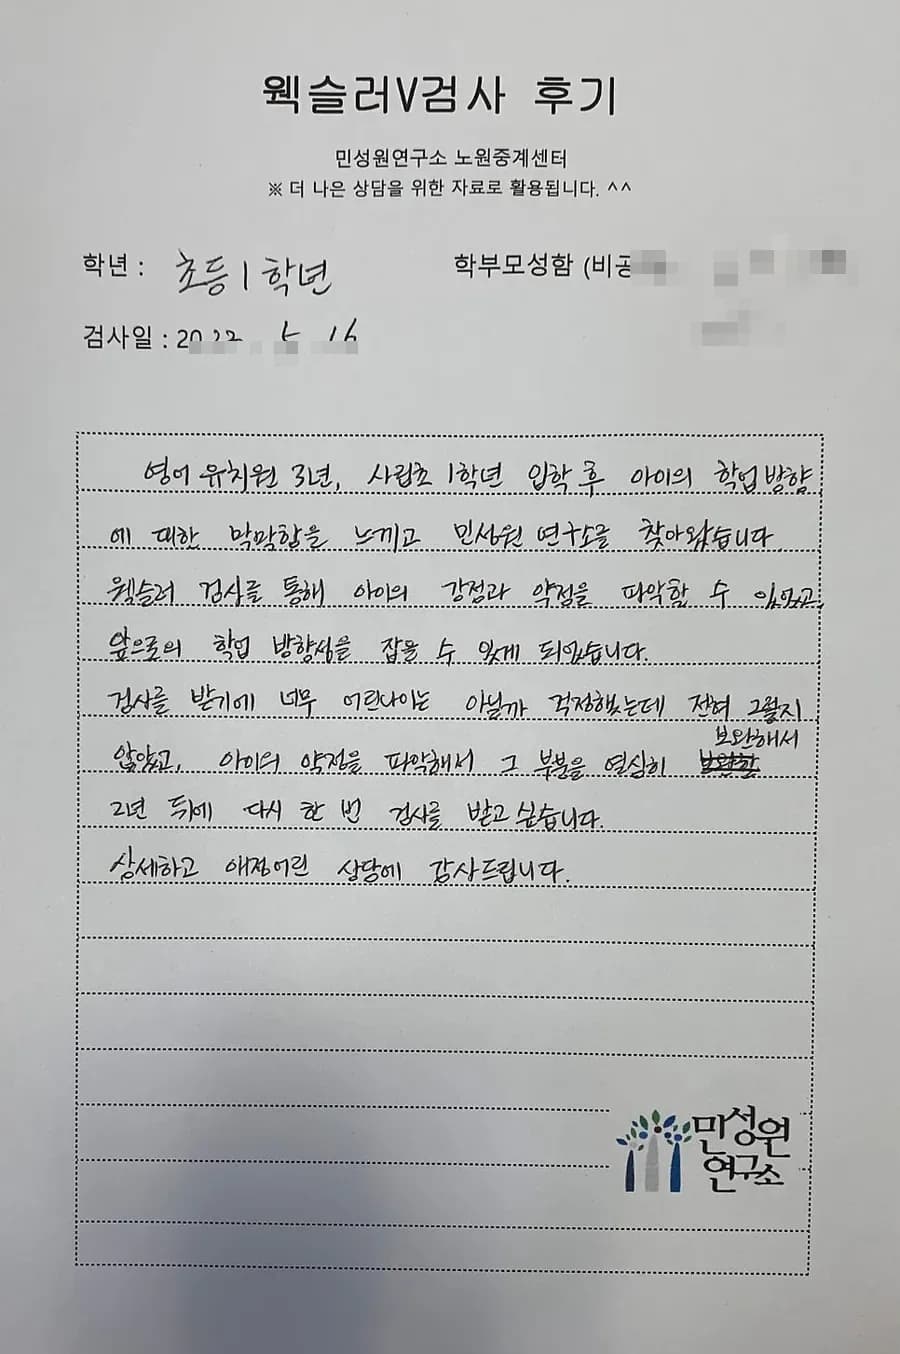 웩슬러V검사 후기
민성원연구소 노원중계센터
※ 더 나은 상담을 위한 자료로 활용됩니다. ^^
학년 : 초등 1 학년 학부모성함 (비공
검사일 : 5 16
영어 유치원 3년, 사립초 1학년 입학 후 아이의 학업방향
에 대한 막막함을 느끼고 민성원 연구소를 찾아왔습니다.
웩슬러 검사를 통해 아이의 강점과 약점을 파악할 수 있었고,
앞으로의 학업 방향성을 잡을 수 있게 되었습니다.
검사를 받기에 너무 어린나이는 아닐까 걱정했는데 전혀 그렇지
않았고, 아이의 약점을 파악해서 그 부분을 열심히 보완해서
2년 뒤에 다시 한 번 검사를 받고 싶습니다.
상세하고 애정어린 상담에 감사드립니다.
민성원
연구소